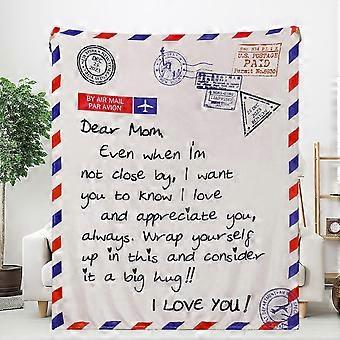 U.S. POSTAGE
PAID
Permit No.
BY AIR MAIL
PAR AVION
Dear Mom,
Even when I'm
not close by, I want
you to know I love
and appreciate you,
always. Wrap yourself
up in this and consider
it a big hug!!
I LOVE YOU!